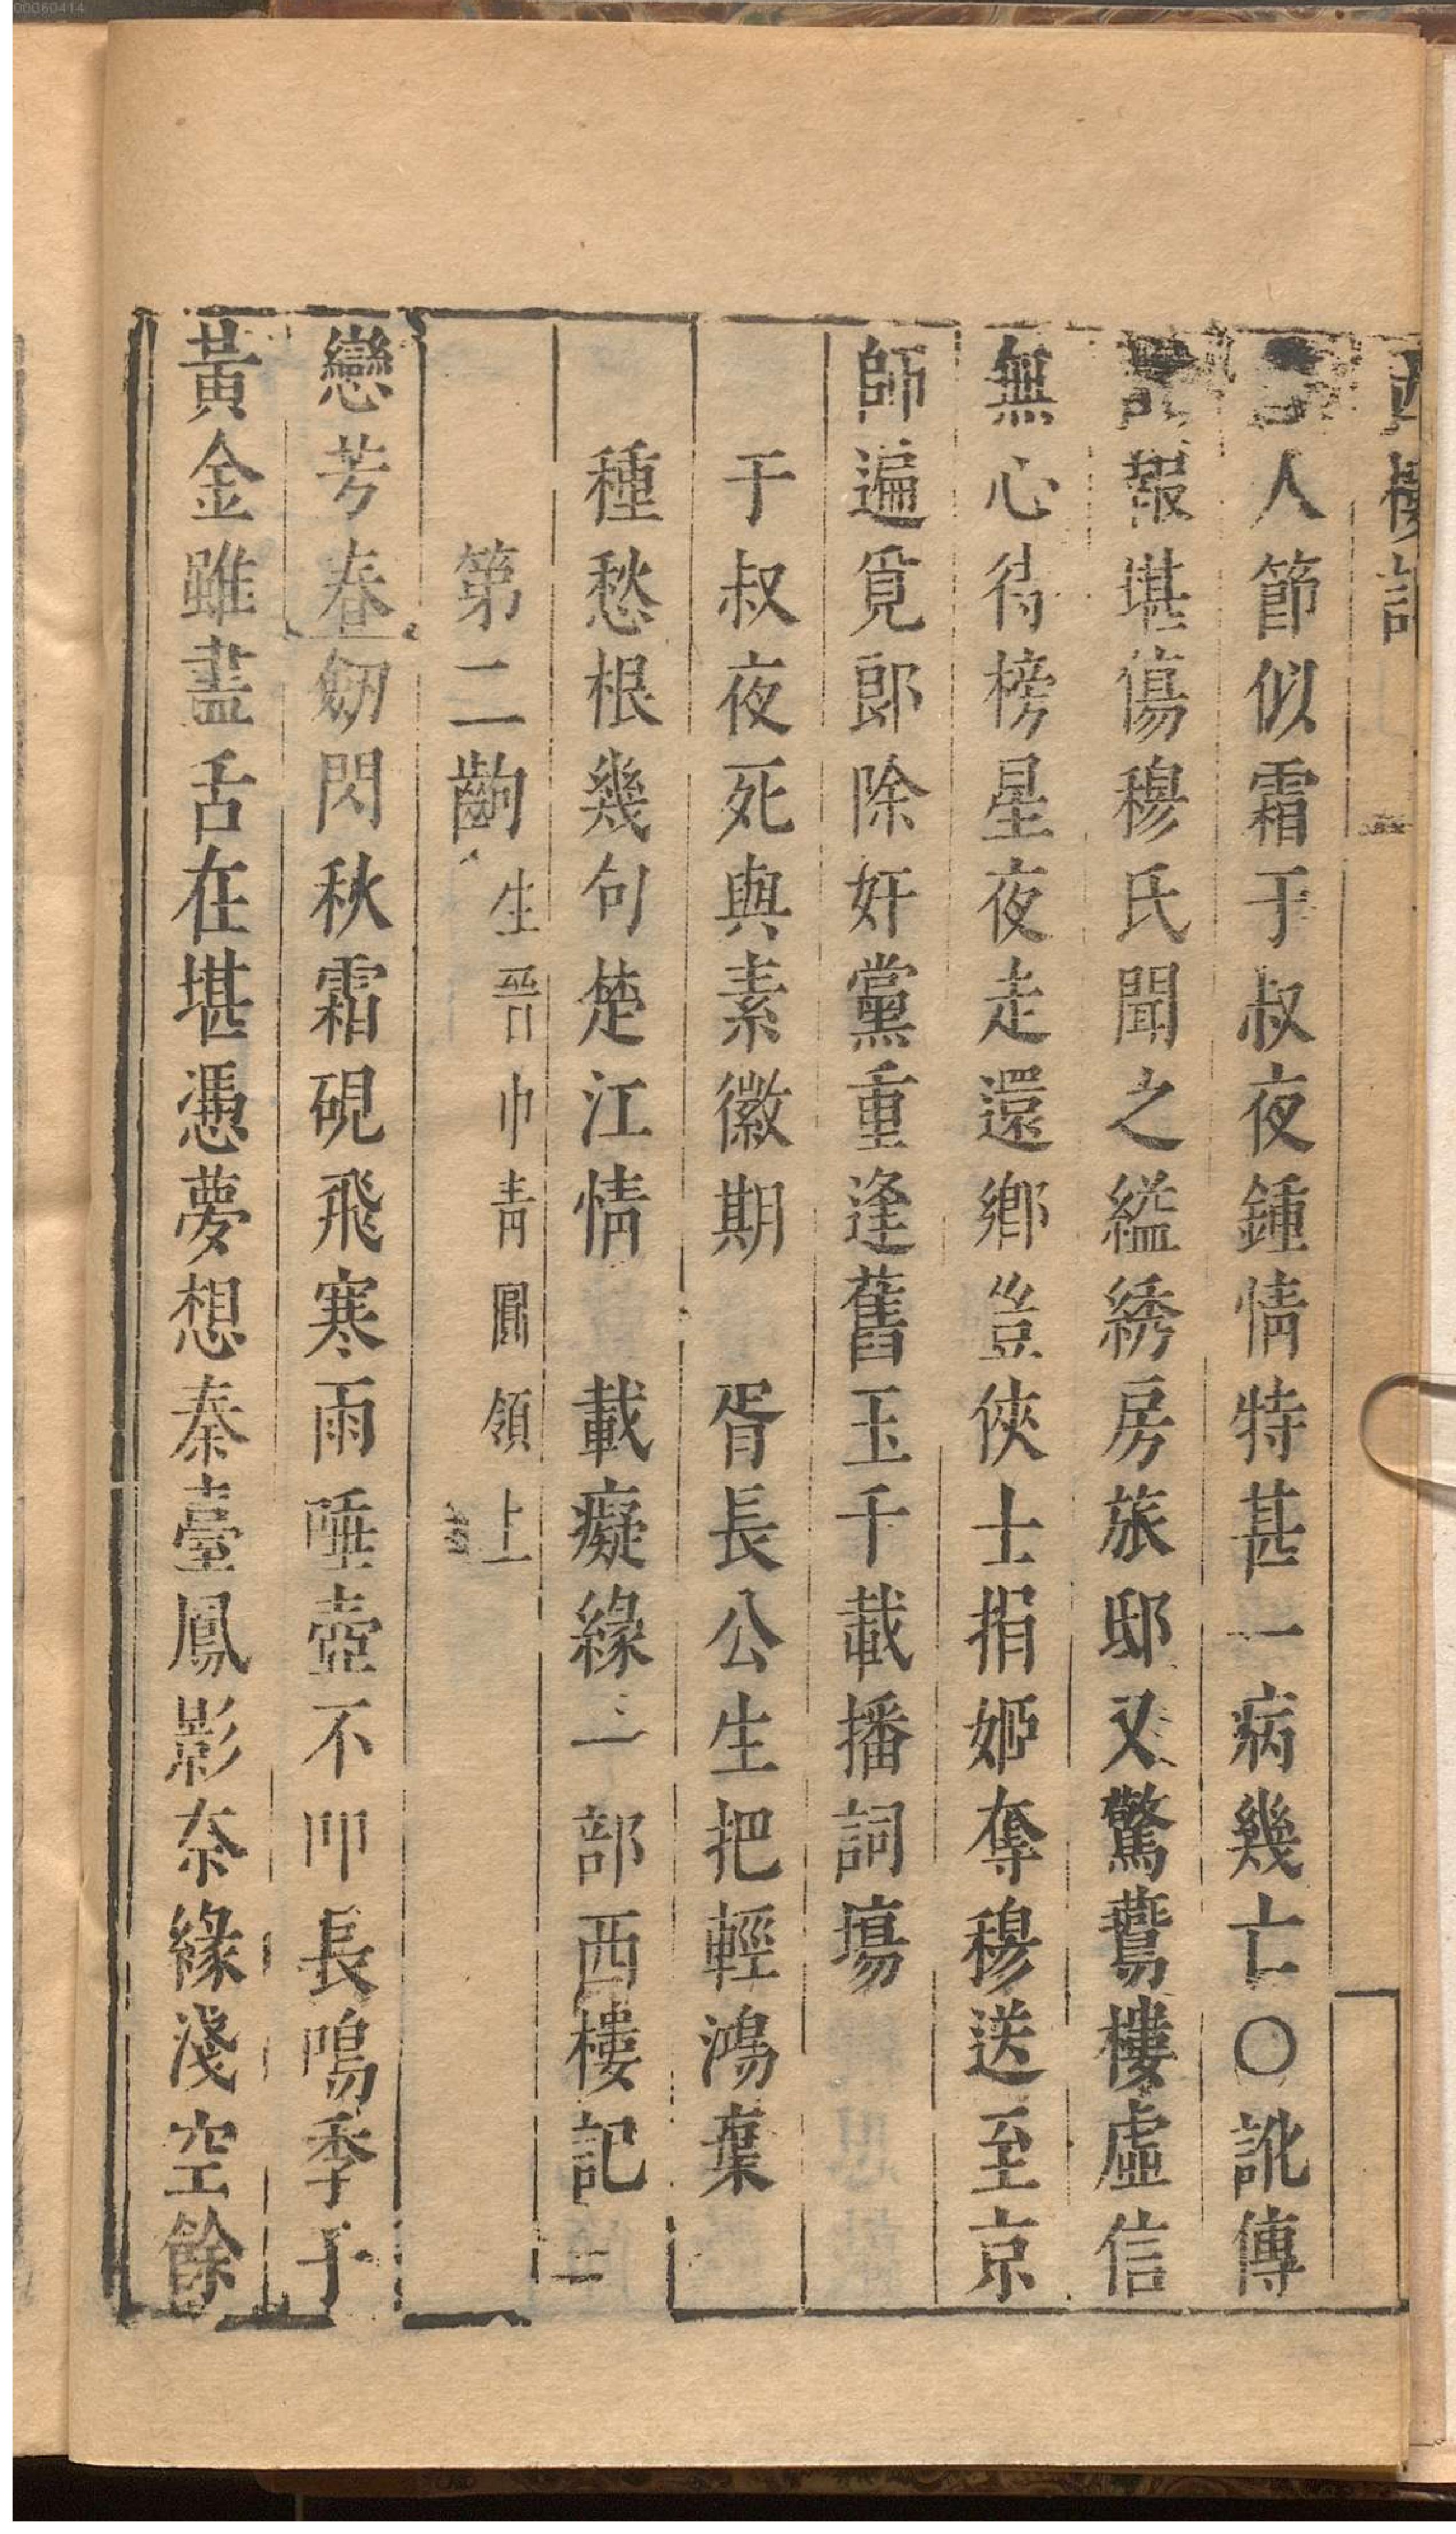 00060414
西樓記
人節似霜于叔夜鍾情特甚一病幾亡〇訛傳
報堪傷穆氏聞之縊綉房旅邸又驚鴛樓虛信
無心待榜星夜走還鄉豈俠士捐姬奪穆送至京
師遍覓郎除奸黨重逢舊玉千載播詞塲
于叔夜死與素徽期　胥長公生把輕鴻葉
種愁根幾句楚江情　載癡緣一部西樓記
第二齣生晉巾青圓領上
戀芳春劒閃秋霜硯飛寒雨唾壺不叩長鳴季子
黃金雖盡舌在堪憑夢想秦臺鳳影奈緣淺空餘